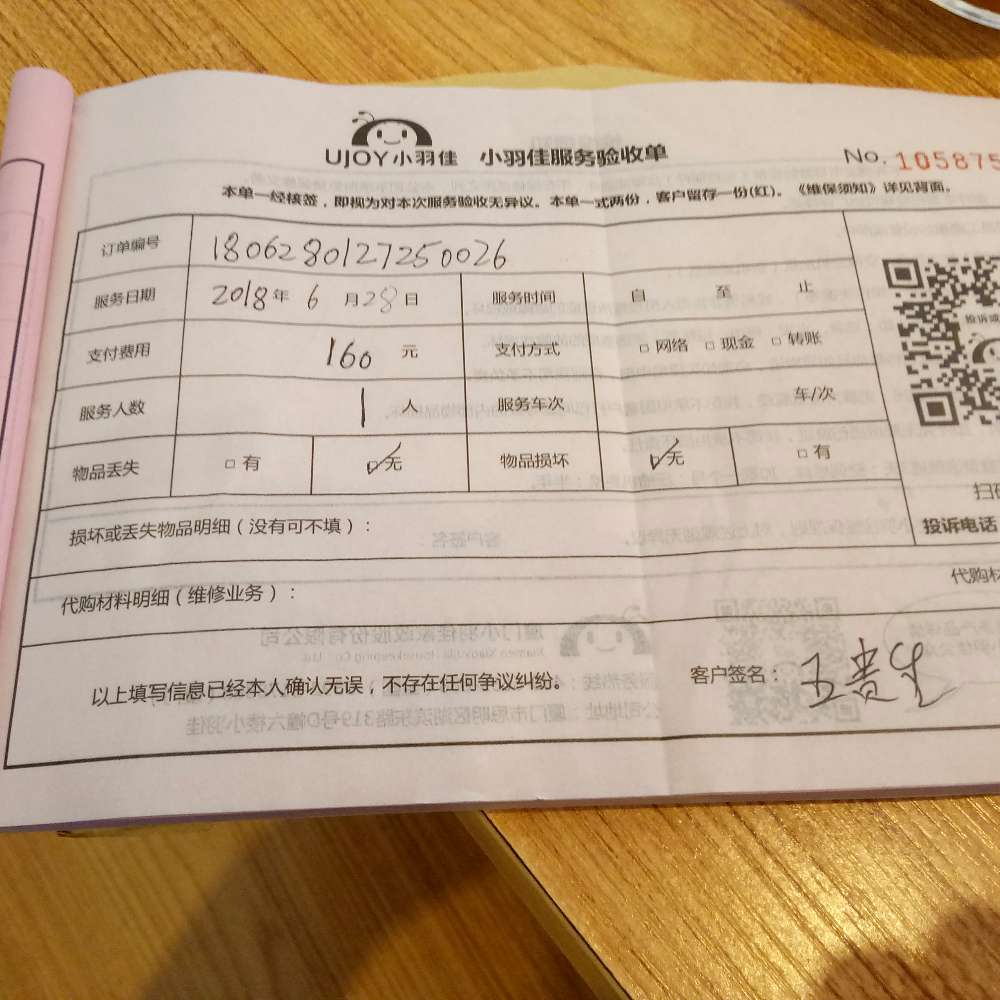 UJOY小羽佳 小羽佳服务验收单 No. 105875
本单一经核签，即视为对本次服务验收无异议。本单一式两份，客户留存一份(红)。《维保须知》详见背面。
订单编号 1806280127250026
服务日期 2018年 6 月 28 日 服务时间 自 至 止
支付费用 160 元 支付方式 □ 网络 □ 现金 □ 转账
服务人数 1 人 服务车次 车/次
物品丢失 □ 有 □ 无 物品损坏 □ 无 □ 有
损坏或丢失物品明细（没有可不填）：
扫码
投诉电话
代购材料明细（维修业务）：
代购材
以上填写信息已经本人确认无误，不存在任何争议纠纷。 客户签名：